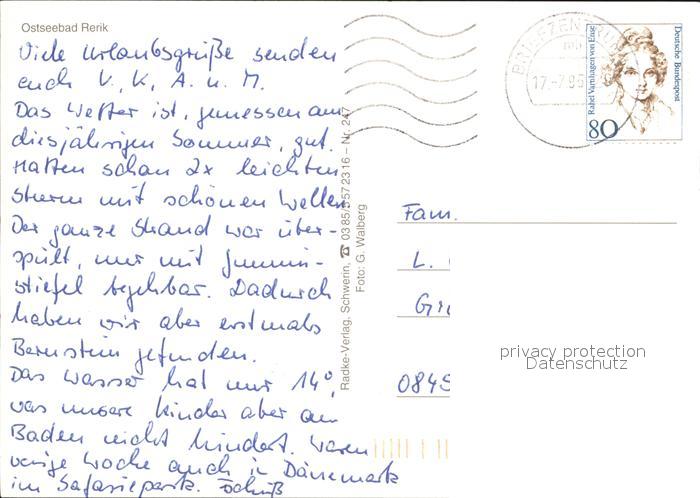 Ostseebad Rerik
Viele Urlaubsgrüße senden
euch V., K., A. u. M.
Das Wetter ist, gemessen am
diesjährigen Sommer, gut.
Hatten schon 2x leichten
Sturm mit schönen Wellen.
Der ganze Strand war über-
spült, nur mit Gummi-
stiefel begehbar. Dadurch
haben wir aber erstmals
Bernstein gefunden.
Das Wasser hat nur 14°,
was unsere Kinder aber am
Baden nicht hindert. Waren
vorige Woche auch in Dänemark
im Safaripark. Tschüß
Radke-Verlag, Schwerin, ☎ 0385/5572316 – Nr. 247
Foto: G. Walberg
BRIEFZENTRUM
17.-7.96
Rahel Varnhagen von Ense
Deutsche Bundespost
80
Fam.
L.
0849
privacy protection
Datenschutz